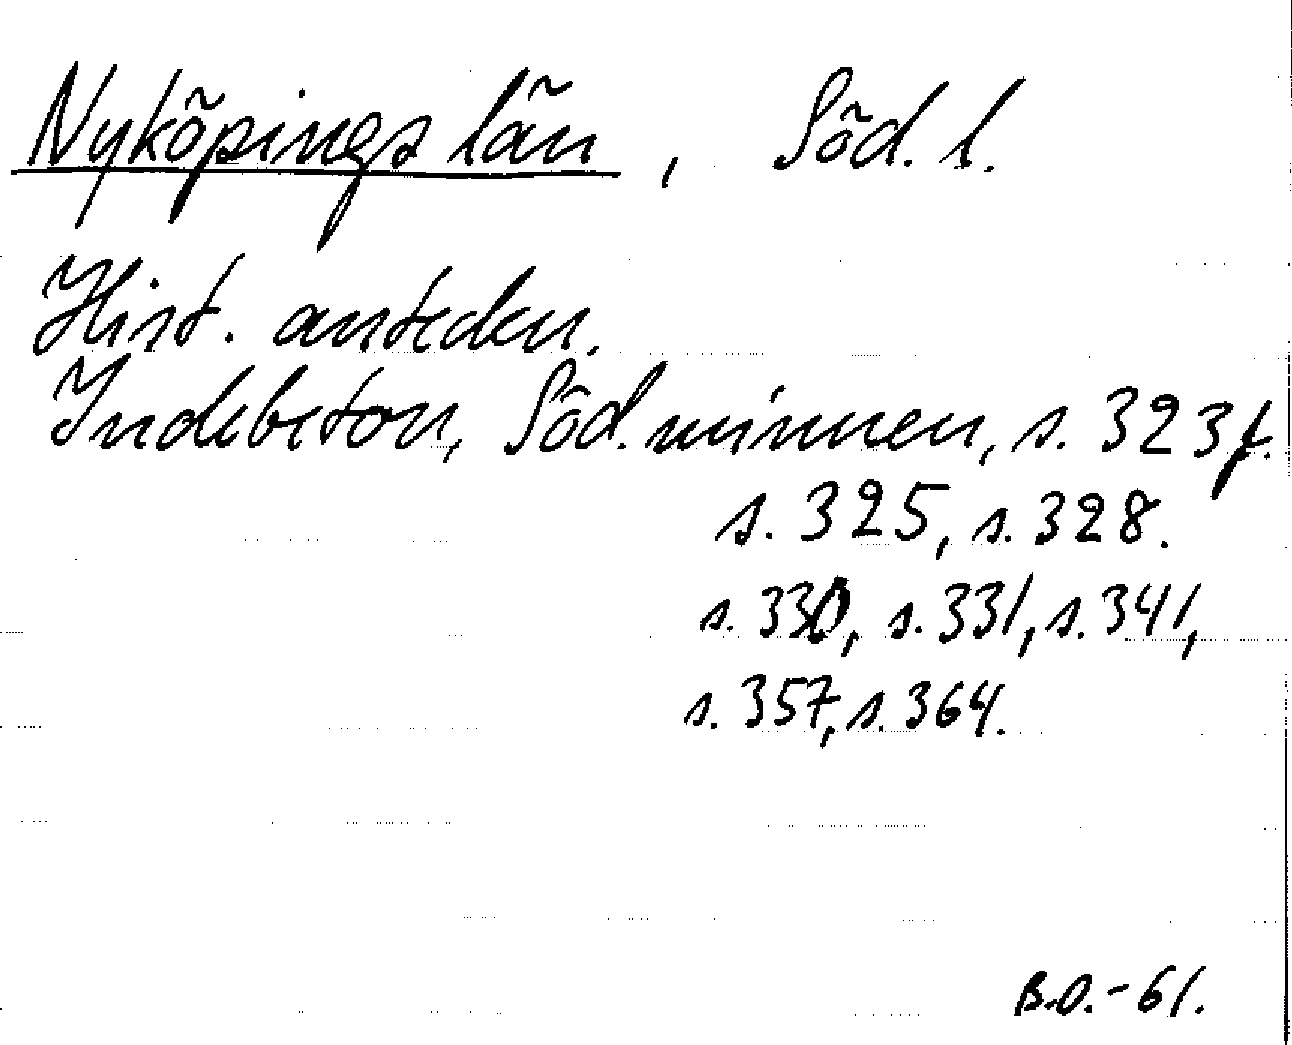 Nyköpings län, Söd. l.
Hist. anteckn.
Indebetou, Söd. minnen, s. 323 f.
s. 325, s. 328.
s. 330, s. 331, s. 341,
s. 357, s. 364.
B.O.-61.